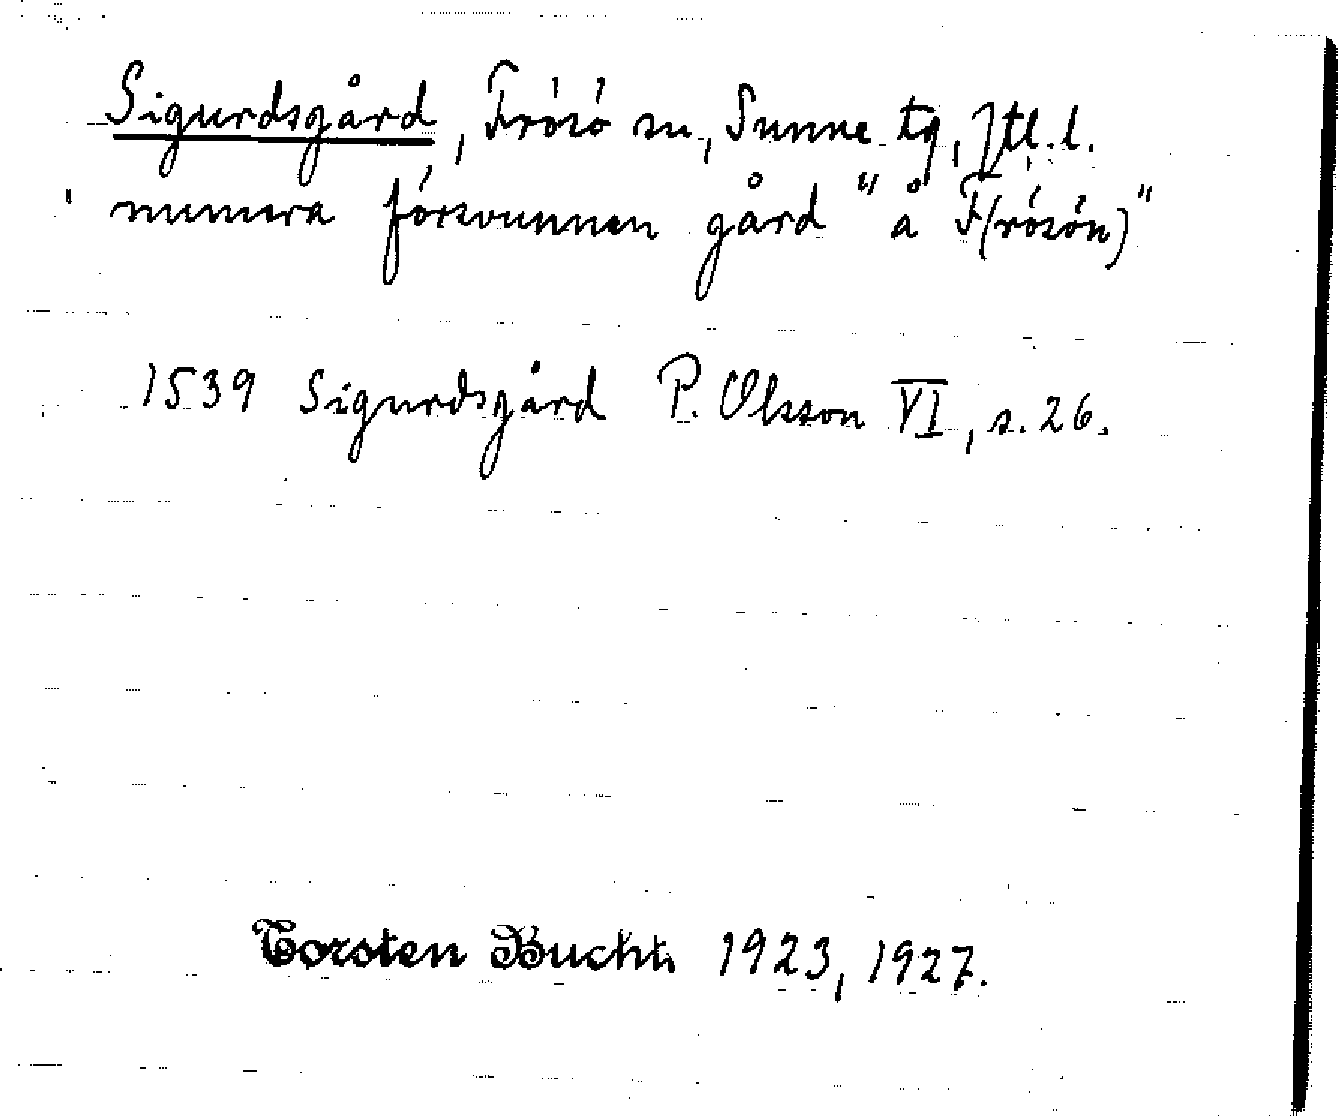 Sigurdsgård, Frösö sn, Sunne tg, Jtl. l.
numera försvunnen gård "å F(rösön)"
1539 Sigurdsgård P. Olsson VI, s. 26.
Torsten Bucht 1923, 1927.